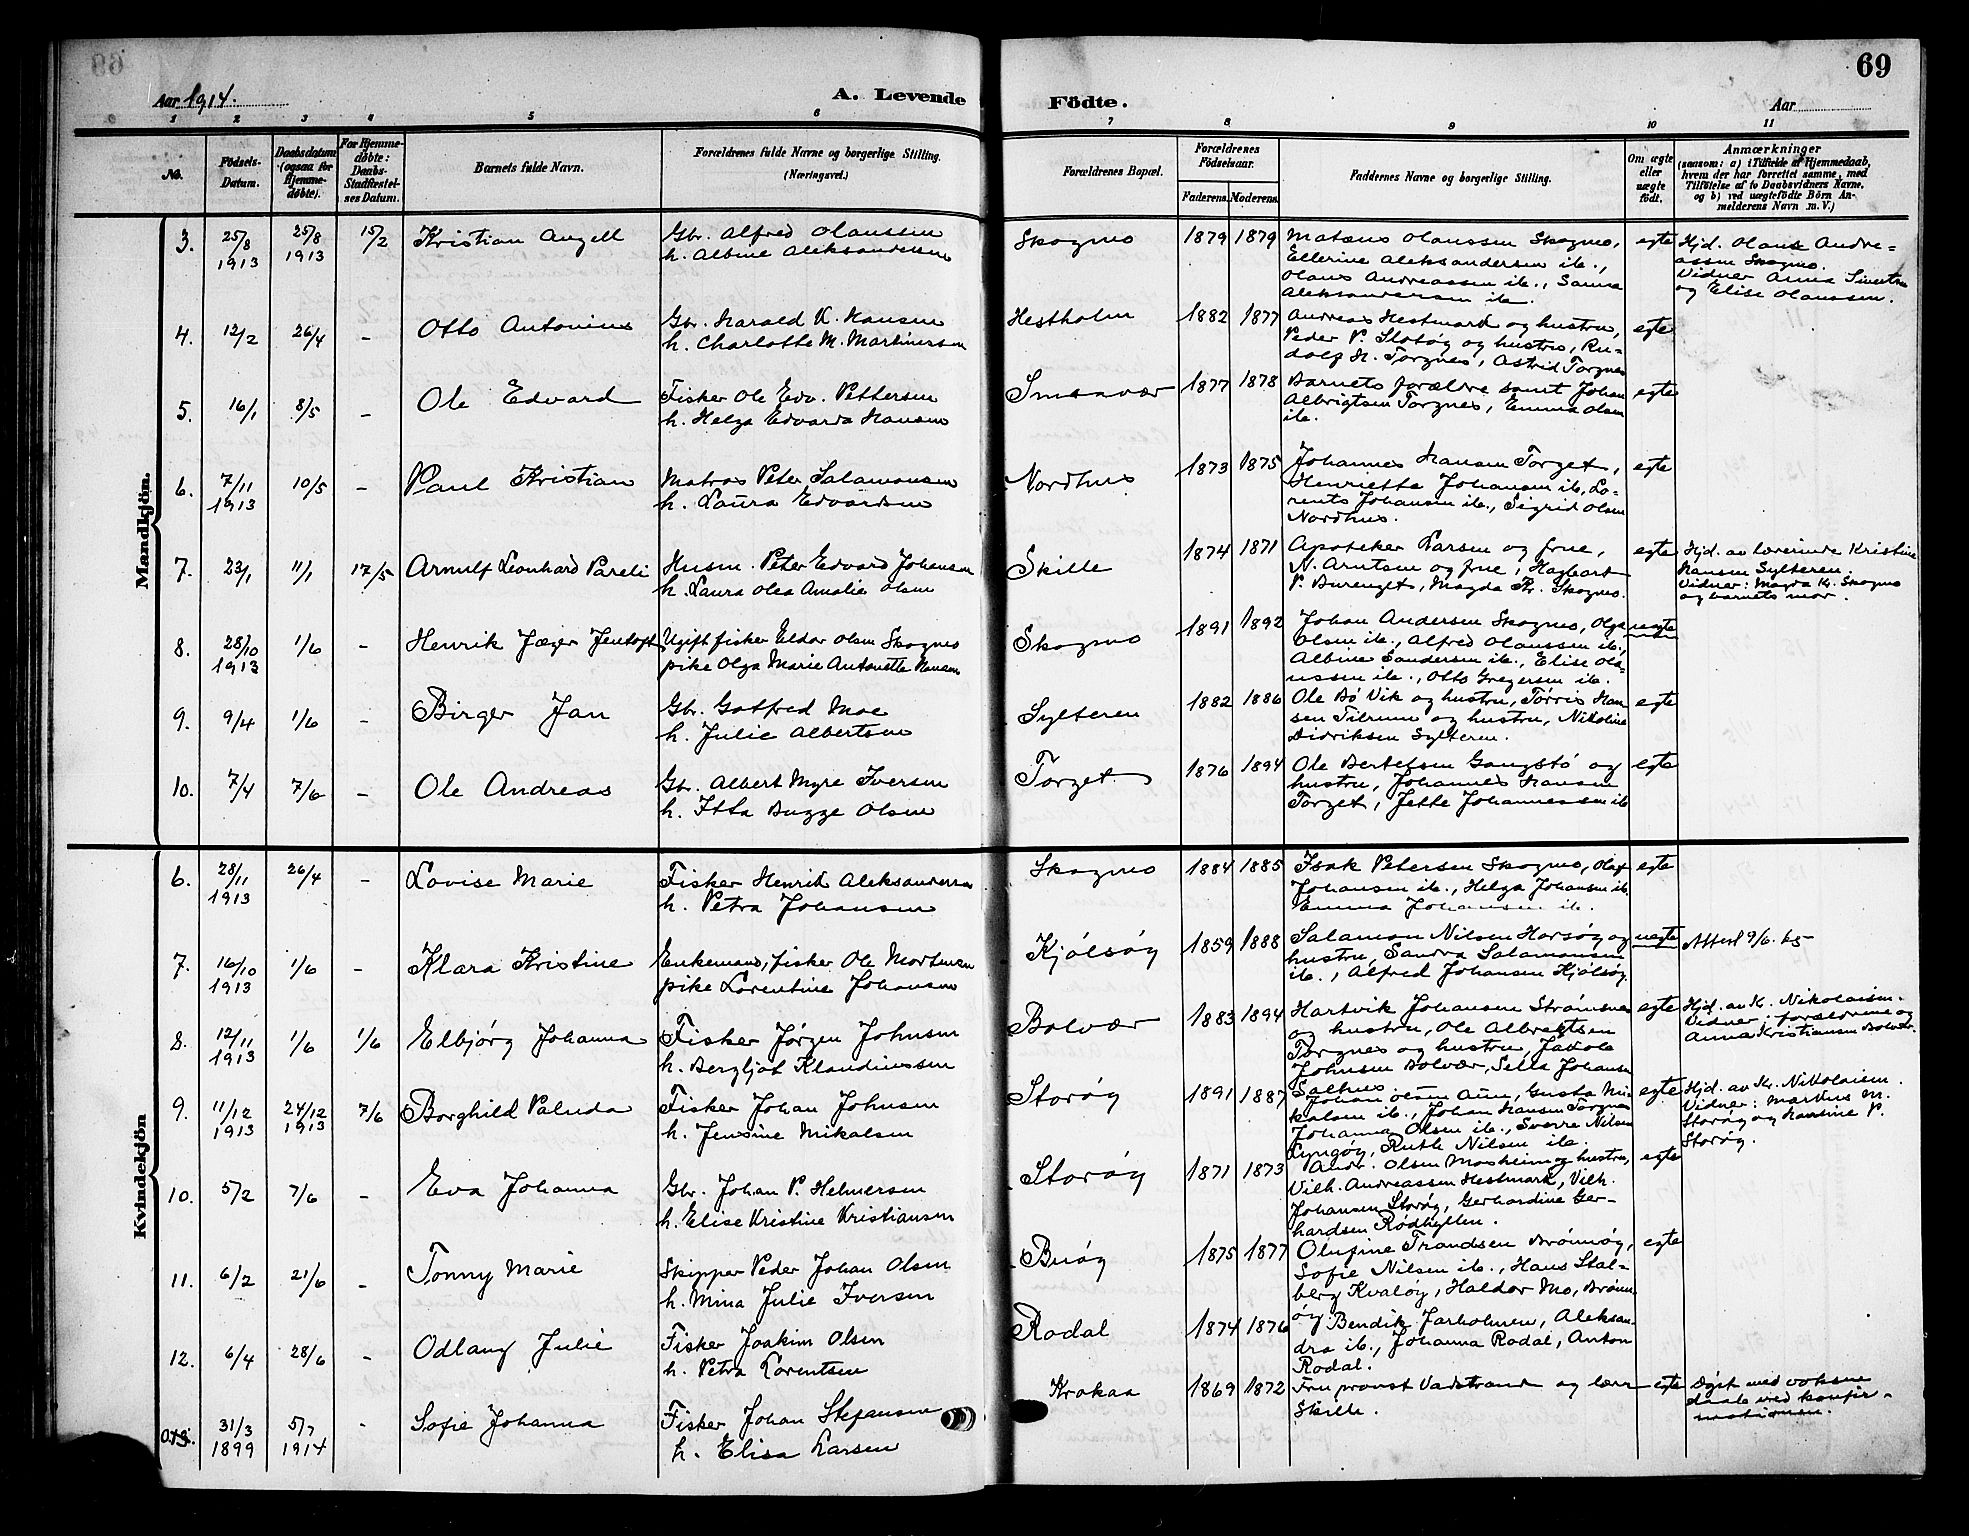 69
Aar 1914.
A. Levende
Födte.
Aar
1 2 3 4 5 6 7 8 9 10 11
No.
Födsels-
Datum.
Daabsdatum
(ogsaa for
Hjemme-
døbte).
For Hjemme-
døbte:
Daabs-
Stadfæstel-
ses Datum.
Barnets fulde Navn.
Forældrenes fulde Navne og borgerlige Stilling.
(Næringsvei.)
Forældrenes Bopæl.
Forældrenes
Födselsaar.
Faderens. Moderens.
Faddernes Navne og borgerlige Stilling.
Om ægte
eller
uægte
født.
Anmærkninger
(saasom: a) i Tilfælde af Hjemmedaab,
hvem der har forrettet samme, med
Tilföielse af to Daabsvidners Navne,
og b) ved uægtefödte Börn An-
melderens Navn m. V.)
Mandkjön.
3. 25/8 1913 25/8 1913 15/2 Kristian Angell
Gbr. Alfred Olaussen
h. Albine Aleksandersen
Skogmo 1879 1879
Matæus Olaussen Skogmo,
Ellerine Aleksandersen ib.,
Olaus Andreassen ib., Sanna
Aleksandersen ib.
egte
Hjd. Olaus Andre-
assen Skogmo.
Vidner Anna Sivertsen
og Elise Olaussen.
4. 12/2 26/4 - Otto Antonius
Gbr. Harald K. Hansen
h. Charlotte M. Martinersen
Hestholm 1882 1877
Andreas Hestmark og hustru,
Peder P. Slotøy og hustru, Ru-
dolf H. Torgnes, Astrid Torgnes
egte
5. 16/1 8/5 - Ole Edvard
Fisker Ole Edv. Pettersen
h. Helga Edvarda Hansen
Smaavær 1877 1878
Barnets forældre samt Johan
Albrigtsen Torgnes, Emma Olsen
ib.
egte
6. 7/11 1913 10/5 - Paul Kristian
Matros Peter Salamonsen
h. Laura Edvardsen
Nordhus 1873 1875
Johannes Hansen Torget,
Henriette Johansen ib., Lo-
rents Johansen ib., Sigrid Olsen
Nordhus.
egte
7. 23/1 11/1 17/5 Arnulf Leonhard Pareli
Husm. Peter Edvard Johansen
h. Laura Olea Amalie Olsen
Skille 1874 1871
Apoteker Larsen og frue,
N. Arntsen og frue, Hagbart
P. Burenget, Magda Kr. Skogmo.
egte
Hjd. av lærerinde Kristine
Hansen Sylteren.
Vidner: Magda K. Skogmo
og barnets mor.
8. 28/10 1913 1/6 - Henrik Jæger Jentoft
Ugift fisker Eldar Olsen Skogmo
pike Olga Marie Antonette Hansen
Skogmo 1891 1892
Johan Andersen Skogmo, Olga
Olsen ib., Alfred Olaussen ib.,
Albine Sandersen ib., Elise Ola-
ussen ib., Otto Gregersen ib.
uegte
9. 9/4 1/6 - Birger Jan
Gbr. Gotfred Moe
h. Julie Albertsen
Sylteren 1882 1886
Ole Bø Vik og hustru, Tørris Han-
sen Tilrum og hustru, Nikoline
Didriksen Sylteren.
egte
10. 7/4 7/6 - Ole Andreas
Gbr. Albert Myre Iversen
h. Itta Bugge Olsen
Torget 1876 1894
Ole Bertelsen Gangstø og
hustru, Johannes Hansen
Torget, Jette Johannessen ib
egte
Kvindekjön
6. 28/11 1913 26/4 - Lovise Marie
Fisker Henrik Aleksandersen
h. Petra Johansen
Skogmo 1884 1885
Isak Petersen Skogmo, Olaf
Johansen ib., Helga Johansen ib.
Emma Johansen ib.
egte
7. 16/10 1913 1/6 - Klara Kristine
Enkemand, fisker Ole Mortensen
pike Lorentine Johansen
Kjølsøy 1859 1888
Salamon Nilsen Horsøy og
hustru, Sandra Salamonsen
ib., Alfred Johansen Kjølsøy.
uegte
Attest 9/6.65
8. 12/11 1913 1/6 1/6 Elbjørg Johanna
Fisker Jørgen Johnsen
h. Bergljot Klaudiussen
Bolvær 1883 1894
Hartvik Johansen Strømsnes
og hustru, Ole Albregtsen
Torgnes og hustru, Jakob
Johnsen Bolvær, Sella Johansen
Salhus.
egte
Hjd. av K. Nikolaisen.
Vidner: forældrene og
Anna Kristiansen Bolvær.
9. 11/12 1913 24/12 1913 7/6 Borghild Paluda
Fisker Johan Johnsen
h. Jensine Mikalsen
Storøy 1891 1887
Johan Olsen Aun, Gusta Mi-
kalsen ib., Johan Hansen Torgnes
Johanna Olsen ib., Sverre Nilsen
Lyngøy, Ruth Nilsen ib.
egte
Hjd. av K. Nikolaisen.
Vidner: Markus M.
Storøy og Hansine P.
Storøy.
10. 5/2 7/6 - Eva Johanna
Gbr. Johan P. Helmersen
h. Elise Kristine Kristiansen
Storøy 1871 1873
Andr. Olsen Mosheim og hustru,
Vilh. Andreassen Hestmark, Vilh.
Johansen Storøy, Gerhardine Ger-
hardsen Rødhyllen.
egte
11. 6/2 21/6 - Tonny Marie
Skipper Peder Johan Olsen
h. Mina Julie Iversen
Buøy 1875 1877
Olufine Trondsen Brønøy,
Sofie Nilsen ib., Hans Stal-
berg Kvaløy, Haldor Mo, Brønn-
øy
egte
12. 6/4 28/6 - Odlaug Julie
Fisker Joakim Olsen
h. Petra Lorentsen
Rodal 1874 1876
Bendik Jarholmen, Aleksan-
dra ib., Johanna Rodal, Anton
Rodal.
13. 31/3 1899 5/7 1914 - Sofie Johanna
Fisker Johan Stefansen
h. Elisa Larsen
Krokaa 1869 1872
Fru provst Vadstrand og lærer
Skille.
egte
Døpt med voksen
daab ved konfir-
mationen.